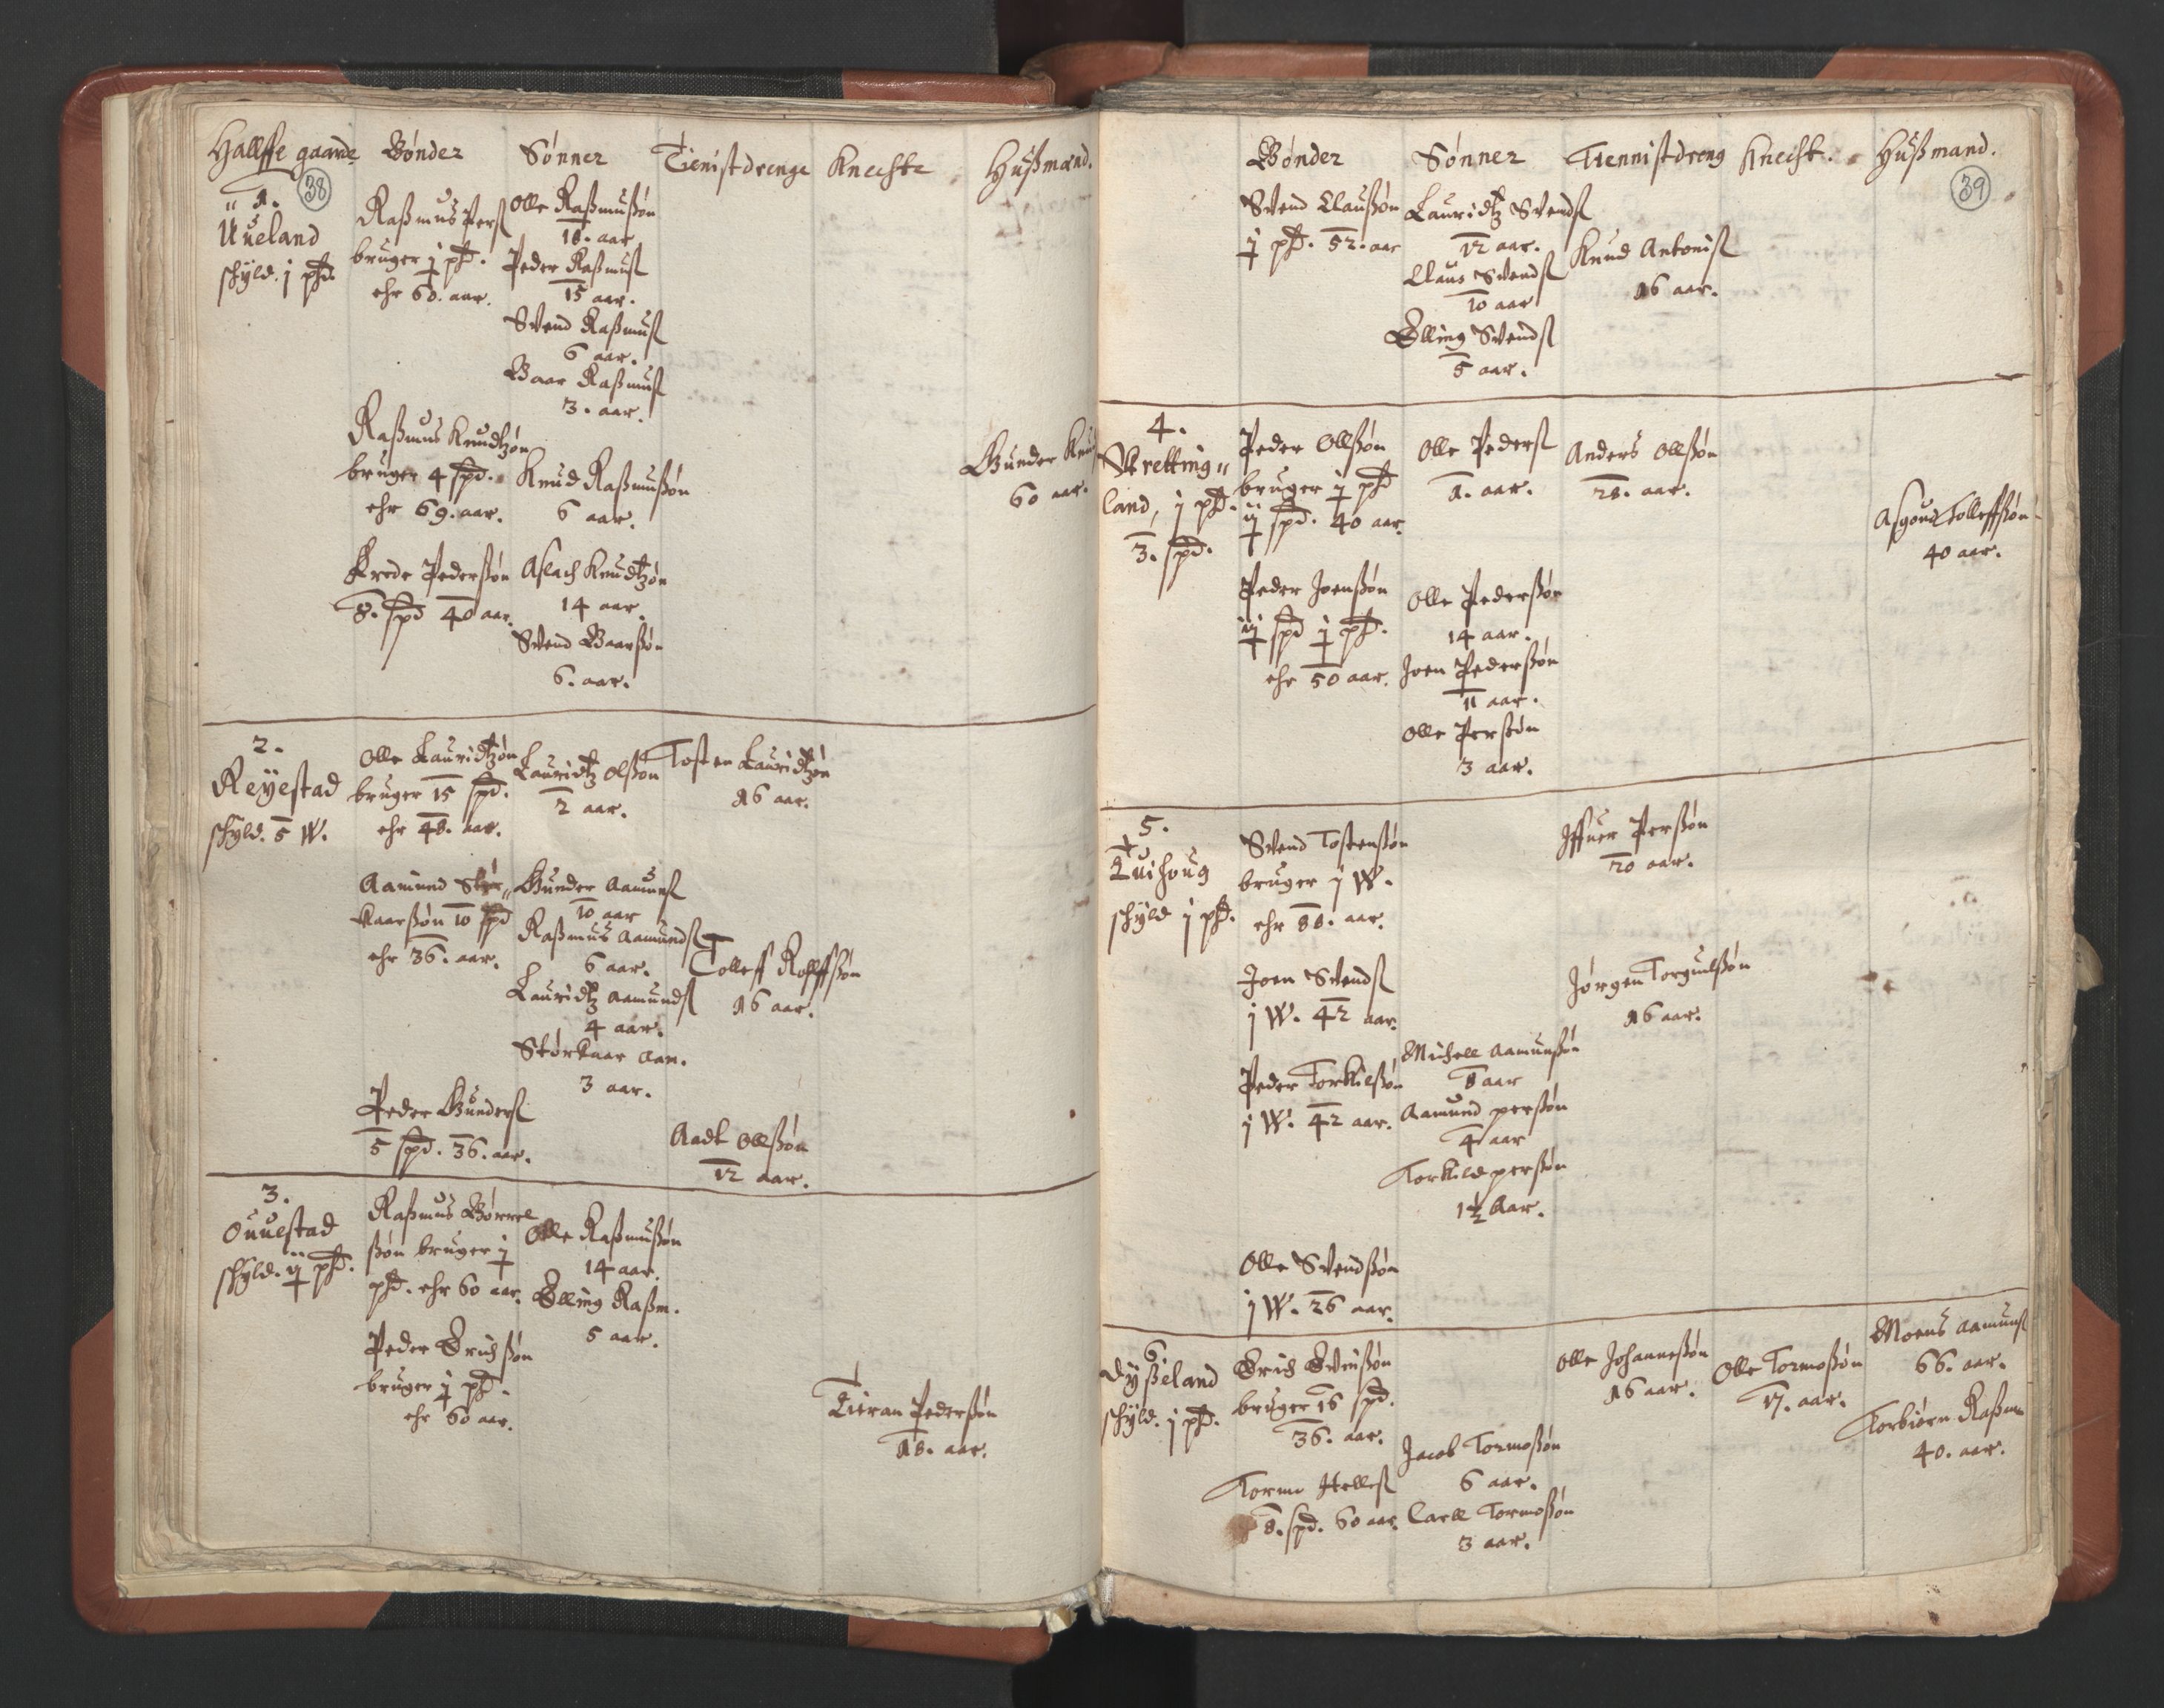 Hallffe gaarde Bønder Sønner Tienistdrenge Knechte Hußmænd.
38
1.
Uueland
schyld. j pfd
Raßmus Pers
bruger j pfd.
ehr 60. aar.
Olle Raßmußøn
18. aar
Peder Raßmus
15 aar.
Svend Raßmus
6 aar.
Baar Raßmus
3. aar.
Raßmus Knudtzøn
bruger 4 spd.
ehr 69. aar.
Knud Raßmußøn
6 aar.
Gunder Knud
60 aar.
Frede Pederßøn
8. spd 40 aar.
Aslach Knudtzøn
14 aar.
Svend Baarßøn
6. aar.
2.
Reyestad
schyld. 5 W.
Olle Lauridtzøn
bruger 15 spd.
ehr 48. aar.
Lauridtz Olßøn
2 aar.
Tosten Lauridtzøn
16 aar.
Aamund Stør„
kaarßøn 10 spd
ehr 36. aar.
Gunder Aamuns
10 aar
Raßmus Aamunds
6 aar.
Lauridtz Aamunds
4 aar.
Størkaar Aam.
3 aar.
Tolleff Rolffßøn
16 aar.
Peder Gunders
5 spd. 36. aar.
Aadt Ollßøn
12 aar.
3.
Ouuestad
schyld. ij pfd.
Raßmus Børre
ßøn bruger j
pfd. ehr 60 aar.
Olle Raßmußøn
14 aar.
Elling Raßm.
5 aar.
Peder Erichßøn
bruger j pfd.
ehr 60 aar.
Tieran Pederßøn
18. aar.
Bønder Sønner Tiennistdreng Knecht. Hußmand.
39
Svend Claußøn
j pfd. 52. aar
Lauridtz Svends
12 aar.
Claus Svends
10 aar
Elling Svends
5 aar.
Knud Antonis
16 aar.
4.
Bretting„
land, j pfd.
3. spd.
Peder Ollßøn
bruger j pfd
ij spd. 40 aar.
Olle Peders
1. aar.
Anders Ollßøn
28. aar.
Asgoud Tolleffßøn
40 aar.
Peder Joenßøn
ij spd j pfd.
ehr 50 aar.
Olle Pederßøn
14 aar.
Joen Pederßøn
11 aar.
Olle Persøn
3 aar.
5.
Tuihoug
schyld j pfd.
Svend Tostenßøn
bruger j W.
ehr 88. aar.
Iffuer Perßøn
20 aar.
Joen Svends
j W. 42 aar.
Jørgen Torguilßøn
16 aar.
Peder Torkilßøn
j W. 42 aar.
Michell Aamunßøn
8 aar
Aamund perßøn
4 aar
Torkild perßøn
1½ Aar.
Olle Svendßøn
j W. 26 aar.
6
Dyßeland
schyld. j pfd.
Erich Evenßøn
bruger 16 spd.
36. aar.
Olle Johanneßøn
16 aar.
Olle Tormoßøn
17. aar.
Moens Aamuns
66. aar.
Torbiørn Raßm
40. aar.
Tormo Helles
8. spd. 60 aar.
Jacob Tormoßøn
6 aar.
Carll Tormoßøn
3 aar.